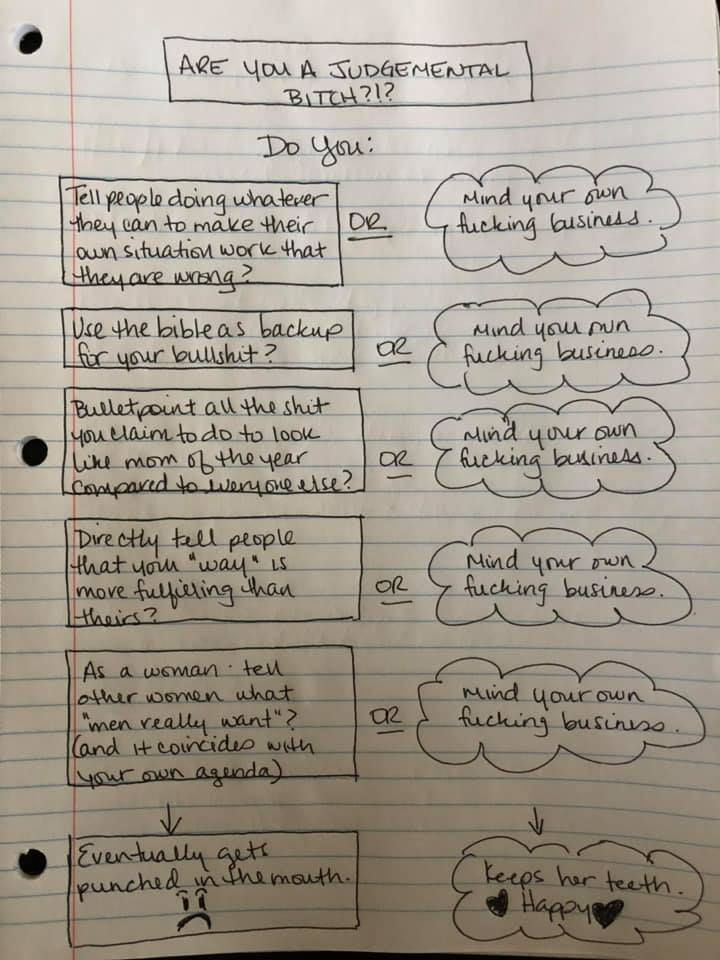 ARE YOU A JUDGEMENTAL
BITCH?!?
Do You:
Tell people doing whatever
they can to make their
own situation work that
they are wrong?
OR
Mind your own
fucking business.
Use the bible as backup
for your bullshit?
OR
Mind your own
fucking business.
Bulletpoint all the shit
you claim to do to look
like mom of the year
compared to everyone else?
OR
Mind your own
fucking business.
Directly tell people
that your "way" is
more fulfilling than
theirs?
OR
Mind your own
fucking business.
As a woman · tell
other women what
"men really want"?
(and it coincides with
your own agenda)
OR
Mind your own
fucking business.
Eventually gets
punched in the mouth.
Keeps her teeth.
Happy